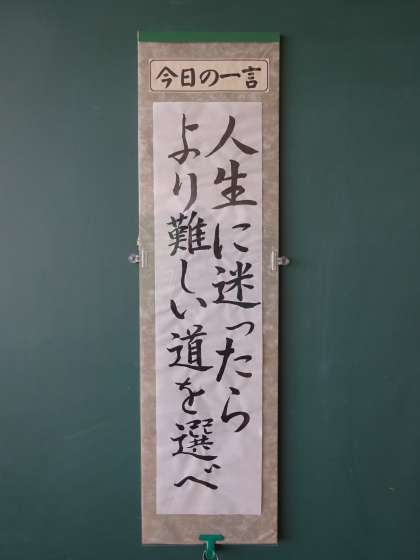 今日の一言
人生に迷ったら
より難しい道を選べ